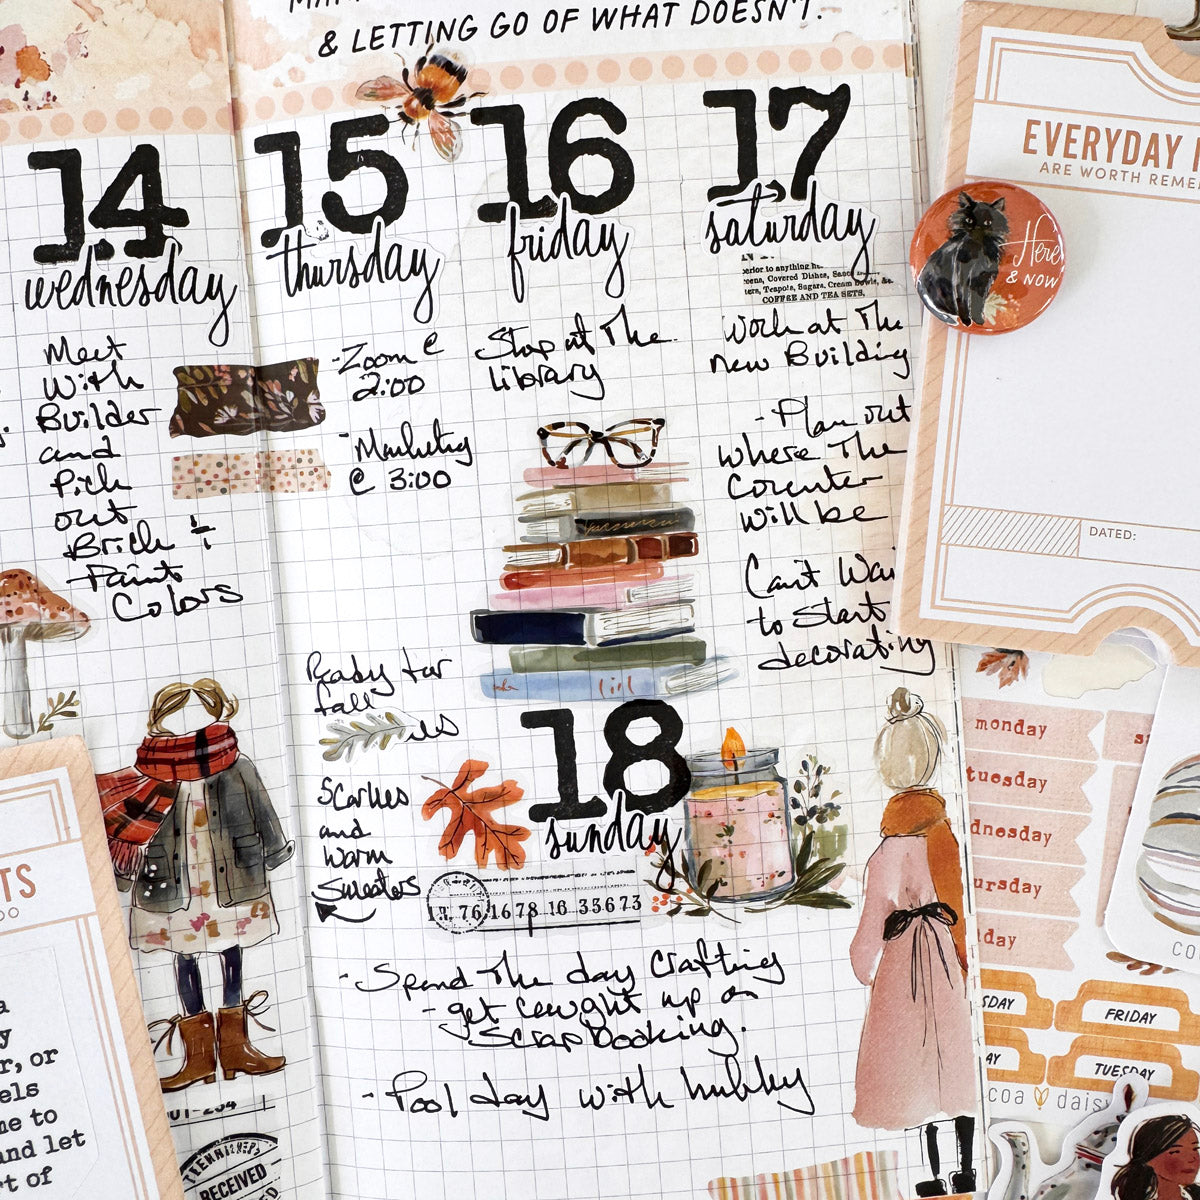 & LETTING GO OF WHAT DOESN'T.
14
wednesday
Meet
With
Builder
and
Pick
out
Brick &
Paint
Colors
15
thursday
- Zoom @
2:00
- Marketing
@ 3:00
Ready for
fall
Scarves
and
Warm
Sweaters
16
friday
Stop at The
library
17
saturday
perior to anything
Covered Dishes, Sauce
Teapots, Sugars, Cream Bowls, &c.
COFFEE AND TEA SETS,
Work at The
new Building
- Plan out
where The
Counter
will be
Can't Wai
to Start
decorating
18
sunday
76 1678 16 35673
- Spend The day Crafting
- get caught up on
Scrapbooking.
- Pool day with hubby
EVERYDAY
ARE WORTH REME
Here
& NOW
DATED:
monday
tuesday
dnesday
ursday
day
SDAY
FRIDAY
AY
TUESDAY
coa daisy
CO
TS
DO
a
y
r, or
els
me to
and let
rt of
RECEIVED